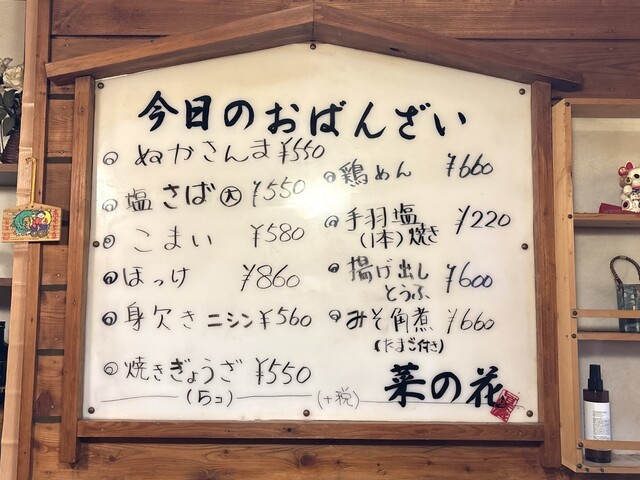 今日のおばんざい
ぬかさんま ¥550
塩さば 大 ¥550
こまい ¥580
ほっけ ¥860
身欠きニシン ¥560
焼きぎょうざ ¥550
(5コ)
鶏めん ¥660
手羽塩 ¥220
(1本)焼き
揚げ出し
とうふ ¥600
みそ角煮 ¥660
(たまご付き)
(+税)
菜の花